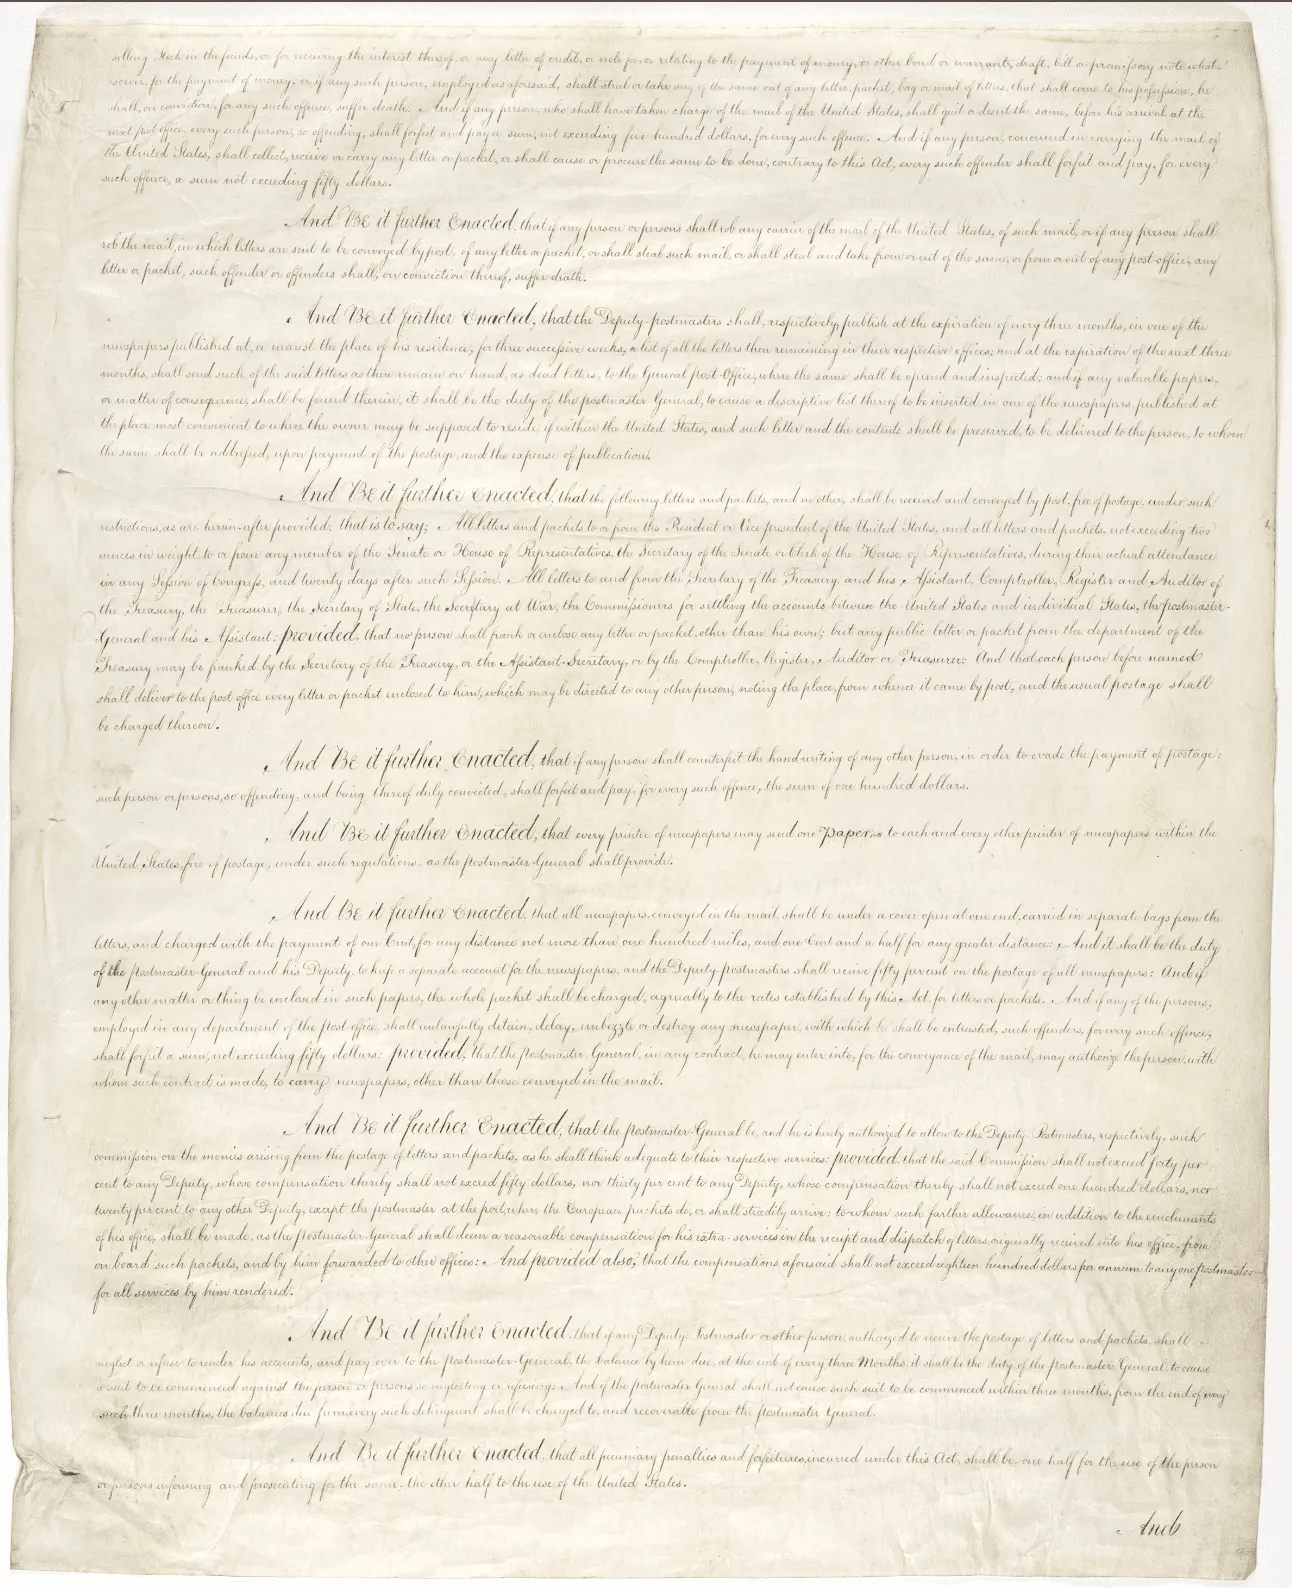 selling stock in the funds, or for receiving the interest thereof, or any letter of credit, or note for, or relating to the payment of money, or other bond or warrant, draft, bill or promissory note what-
soever, for the payment of money; or if any such person, employed as aforesaid, shall steal or take any of the same out of any letter, packet, bag or mail of letters, that shall come to his possession, he
shall, on conviction, for any such offence, suffer death. And if any person, who shall have taken charge of the mail of the United States, shall quit or desert the same, before his arrival at the
next post-office, every such person, so offending, shall forfeit and pay a sum, not exceeding five hundred dollars, for every such offence. And if any person, concerned in carrying the mail of
the United States, shall collect, receive or carry any letter or packet, or shall cause or procure the same to be done, contrary to this Act, every such offender shall forfeit and pay, for every
such offence, a sum not exceeding fifty dollars.
And Be it further Enacted, that if any person or persons shall rob any carrier of the mail of the United States, of such mail, or if any person shall
rob the mail, in which letters are sent to be conveyed by post, of any letter or packet, or shall steal such mail, or shall steal and take from or out of the same, or from or out of any post-office, any
letter or packet, such offender or offenders shall, on conviction thereof, suffer death.
And Be it further Enacted, that the Deputy-postmasters shall, respectively, publish at the expiration of every three months, in one of the
newspapers published at, or nearest the place of his residence, for three successive weeks, a list of all the letters then remaining in their respective offices; and at the expiration of the next three
months, shall send such of the said letters as then remain on hand, as dead letters, to the General post-Office, where the same shall be opened and inspected; and if any valuable papers,
or matter of consequence, shall be found therein, it shall be the duty of the postmaster General, to cause a descriptive list thereof to be inserted in one of the newspapers, published at
the place most convenient to where the owner may be supposed to reside, if within the United States, and such letter and the contents shall be preserved, to be delivered to the person, to whom
the same shall be addressed, upon payment of the postage, and the expense of publication.
And Be it further Enacted, that the following letters and packets, and no other, shall be received and conveyed by post, free of postage, under such
restrictions, as are herein-after provided; that is to say; All letters and packets to or from the President or Vice-president of the United States, and all letters and packets, not exceeding two
ounces in weight, to or from any member of the Senate or House of Representatives, the Secretary of the Senate or Clerk of the House of Representatives, during their actual attendance
in any Session of Congress, and twenty days after such Session. All letters to and from the Secretary of the Treasury, and his Assistant, Comptroller, Register and Auditor of
the Treasury, the Treasurer, the Secretary of State, the Secretary at War, the Commissioners for settling the accounts between the United States and individual States, the postmaster-
General and his Assistant: provided, that no person shall frank or enclose any letter or packet, other than his own; but any public letter or packet from the department of the
Treasury may be franked by the Secretary of the Treasury, or the Assistant-Secretary, or by the Comptroller, Register, Auditor or Treasurer; And that each person before named
shall deliver to the post office every letter or packet enclosed to him, which may be directed to any other person, noting the place, from whence it came by post, and the usual postage shall
be charged thereon.
And Be it further Enacted, that if any person shall counterfeit the hand-writing of any other person, in order to evade the payment of postage;
such person or persons, so offending, and being thereof duly convicted, shall forfeit and pay, for every such offence, the sum of one hundred dollars.
And Be it further Enacted, that every printer of newspapers may send one Paper, to each and every other printer of newspapers within the
United States, free of postage, under such regulations, as the postmaster-General shall provide.
And Be it further Enacted, that all newspapers, conveyed in the mail, shall be under a cover open at one end, carried in separate bags from the
letters, and charged with the payment of one Cent, for any distance not more than one hundred miles, and one Cent and a half for any greater distance: And it shall be the duty
of the postmaster-General and his Deputy, to keep a separate account for the newspapers, and the Deputy-postmasters shall receive fifty per cent on the postage of all newspapers: And if
any other matter or thing be enclosed in such papers, the whole packet shall be charged, agreeably to the rates established by this Act, for letters or packets. And if any of the persons,
employed in any department of the post office, shall unlawfully detain, delay, embezzle or destroy any newspaper, with which he shall be entrusted, such offenders, for every such offence,
shall forfeit a sum, not exceeding fifty dollars: provided, that the postmaster-General, in any contract, he may enter into, for the conveyance of the mail, may authorize the person, with
whom such contract is made, to carry newspapers, other than those conveyed in the mail.
And Be it further Enacted, that the postmaster-General be, and he is hereby authorized to allow to the Deputy Postmasters, respectively, such
commission on the monies arising from the postage of letters and packets, as he shall think adequate to their respective services: provided, that the said Commission shall not exceed forty per
cent to any Deputy, whose compensation thereby shall not exceed fifty dollars, nor thirty per cent to any Deputy, whose compensation thereby shall not exceed one hundred dollars, nor
twenty per cent to any other Deputy, except the postmaster at the port, where the European packets do, or shall steadily arrive; to whom such farther allowance, in addition to the emoluments
of his office, shall be made, as the postmaster-General shall deem a reasonable compensation for his extra-services in the receipt and dispatch of letters, originally received into his office, from
on board such packets, and by him forwarded to other offices: And provided also, that the compensations aforesaid shall not exceed eighteen hundred dollars per annum to any one postmaster
for all services by him rendered.
And Be it further Enacted, that if any Deputy Postmaster or other person, authorized to receive the postage of letters and packets, shall
neglect or refuse to render his accounts, and pay over to the postmaster-General, the balance by him due, at the end of every three Months, it shall be the duty of the postmaster General, to cause
a suit to be commenced against the person or persons so neglecting or refusing: And if the postmaster General shall not cause such suit to be commenced within three months, from the end of every
such three months, the balances due from every such delinquent shall be charged to, and recoverable from the postmaster General.
And Be it further Enacted, that all pecuniary penalties and forfeitures, incurred under this Act, shall be, one half for the use of the person
or persons informing and prosecuting for the same, the other half to the use of the United States.
And